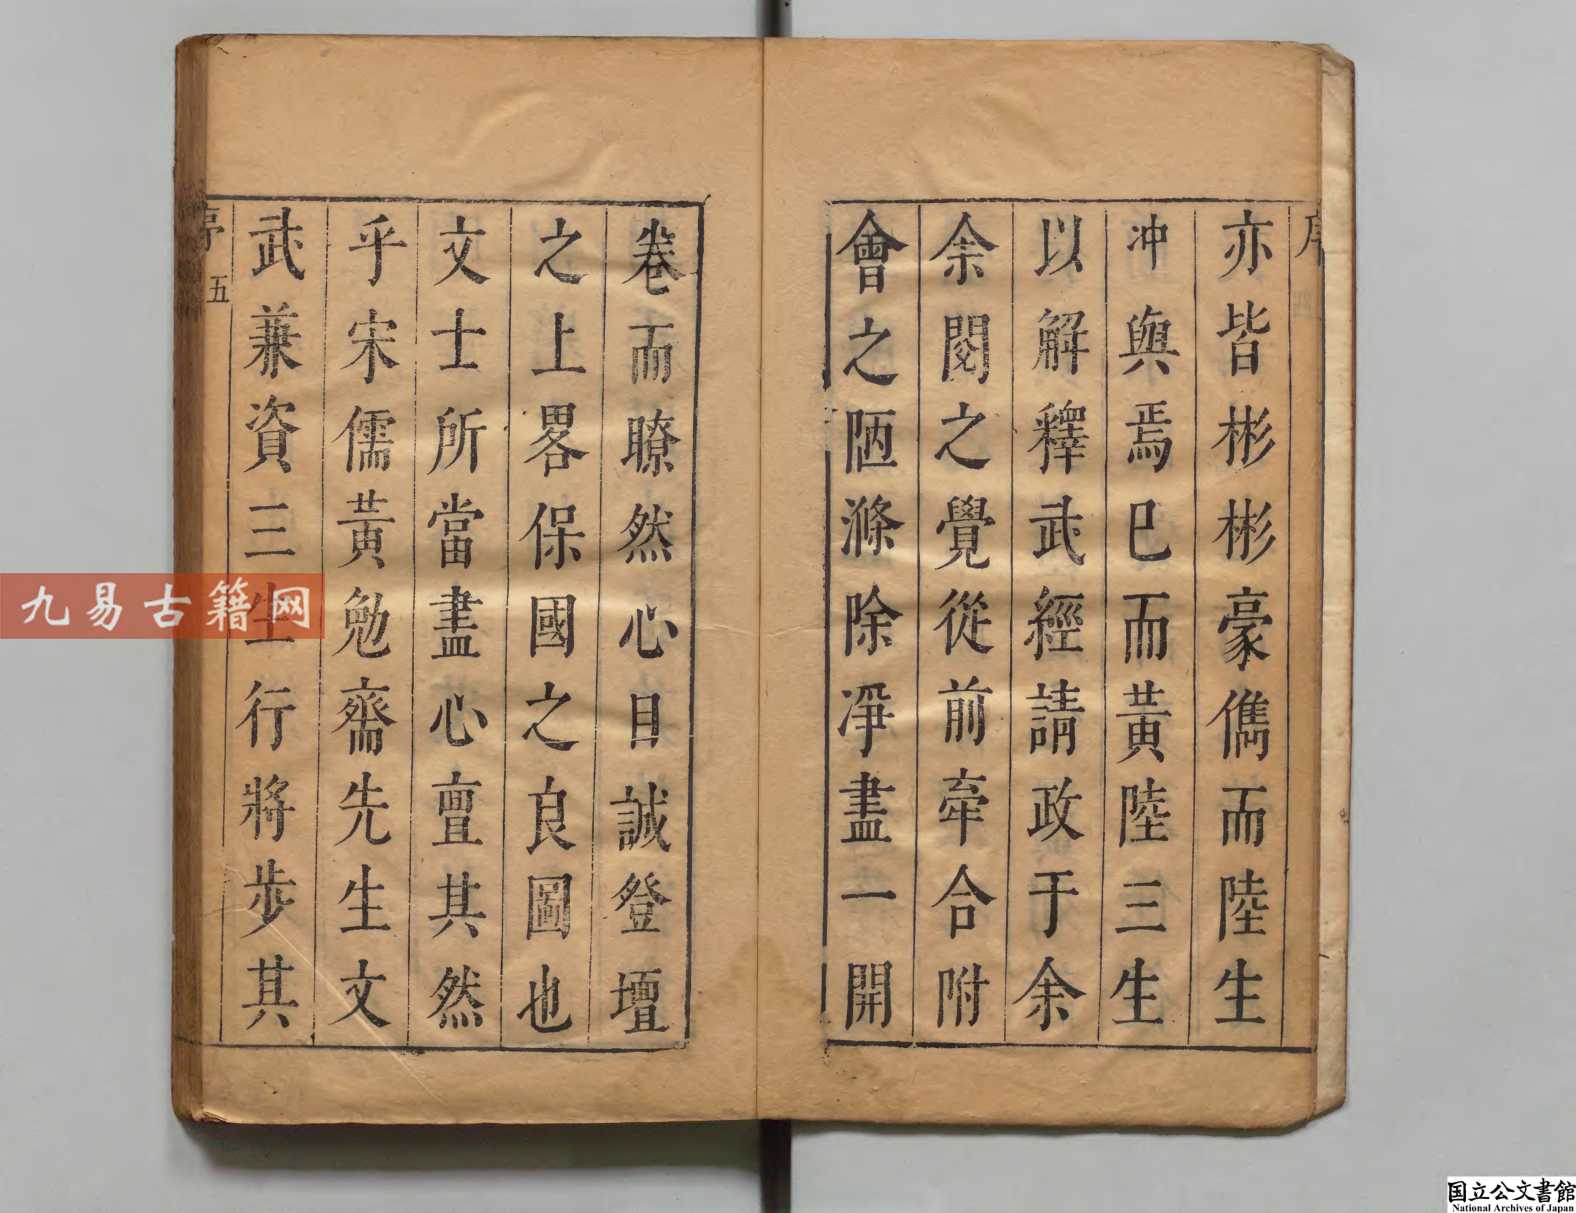 序
亦皆彬彬豪儁而陸生
冲與焉已而黃陸三生
以解釋武經請政于余
余閱之覺從前牽合附
會之陋滌除淨盡一開
卷而瞭然心目誠登壇
之上畧保國之良圖也
文士所當盡心亶其然
乎宋儒黃勉齋先生文
武兼資三生行將步其
序
五
九易古籍网
国立公文書館
National Archives of Japan